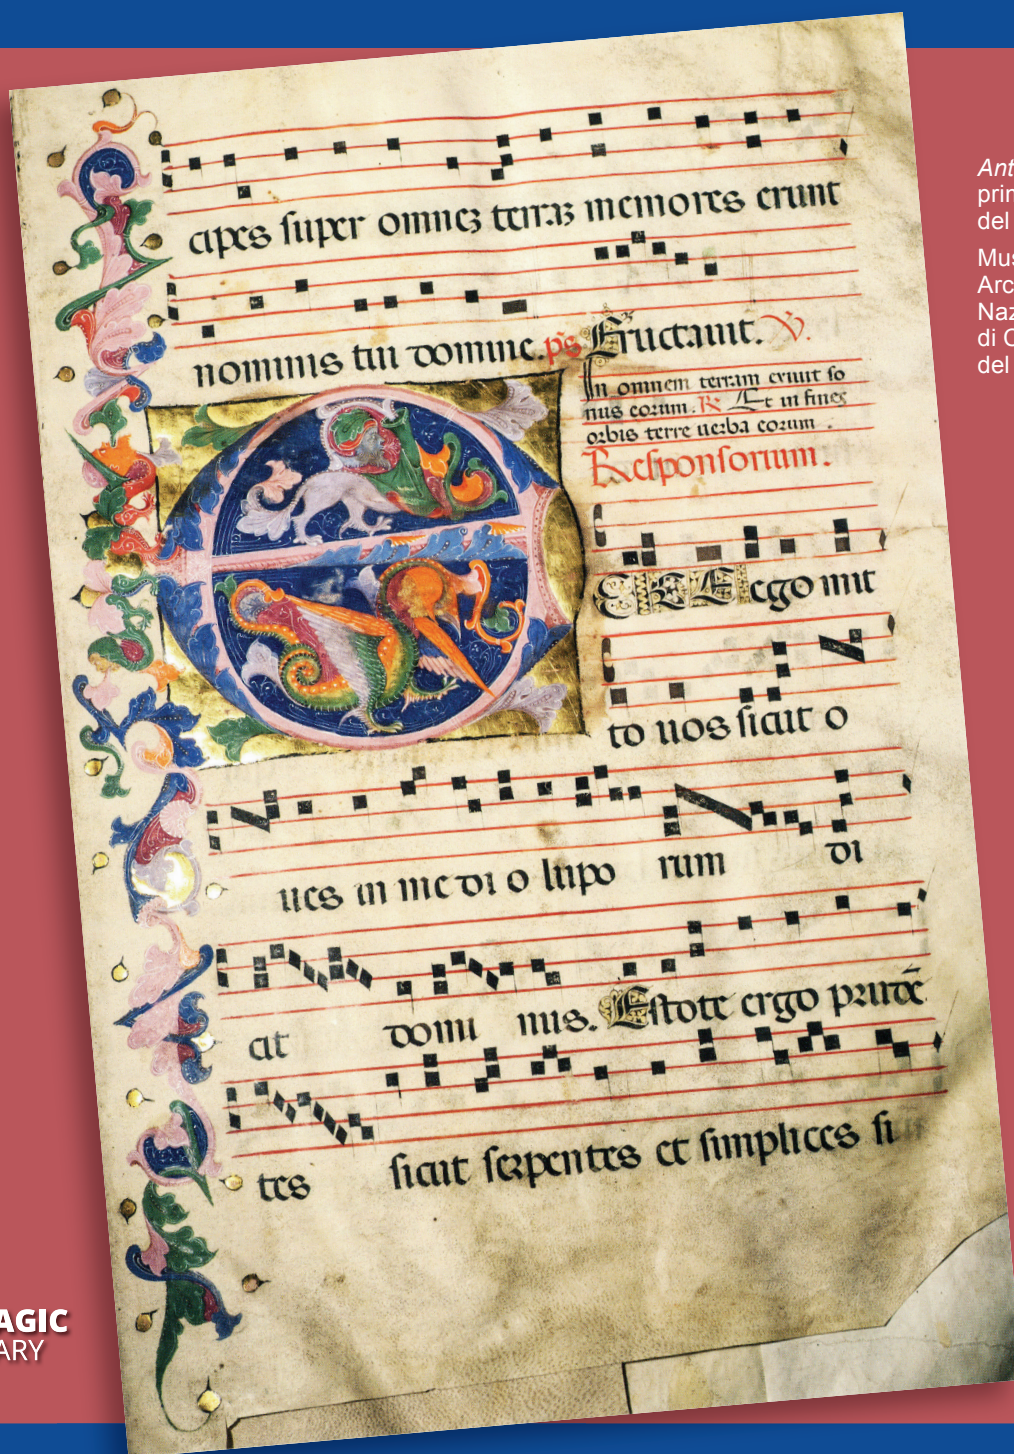 cipes super omnes terras memores erunt
nominis tui domine. ps Eructauit. V.
In omnem terram exiuit so
nus eorum. R Et in fines
orbis terre uerba eorum.
Responsorium.
ECCE ego mit
to uos sicut o
ues in medi o lupo rum di
cit domi nus. Estote ergo prudē
tes sicut serpentes et simplices si
Ant
prim
del
Mus
Arc
Naz
di C
del
AGIC
ARY